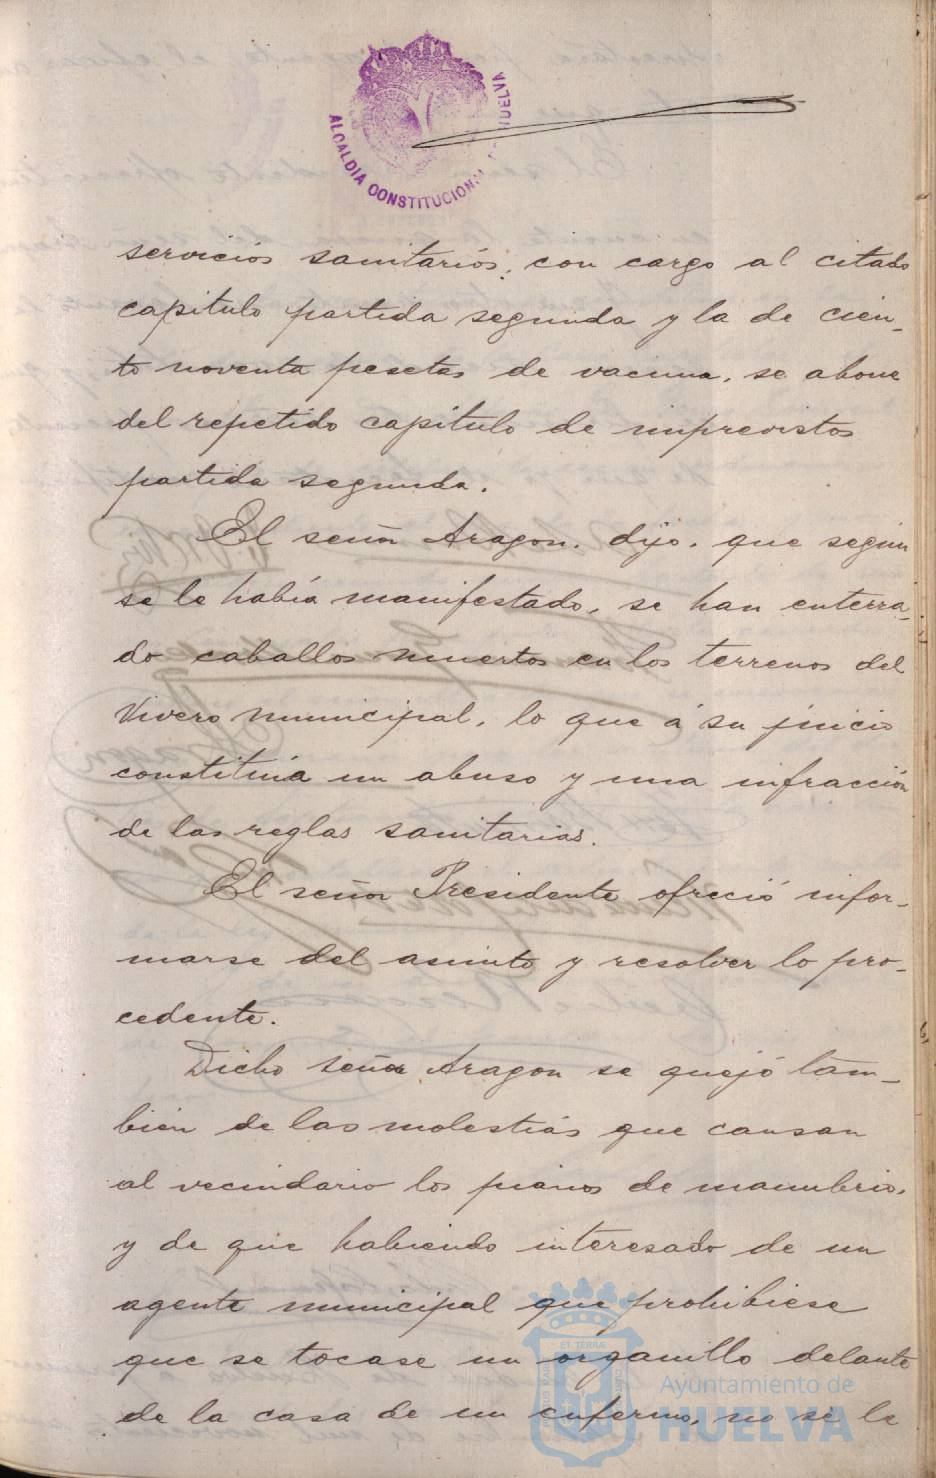 ALCALDIA CONSTITUCIONAL HUELVA
servicios sanitarios, con cargo al citado
capitulo partida segunda y la de cien-
to noventa pesetas de vacuna, se abone
del repetido capitulo de imprevistos
partida segunda.
El señor Aragon, dijo, que segun
se le había manifestado, se han enterra-
do caballos muertos en los terrenos del
Vivero municipal, lo que á su juicio
constituía un abuso y una infracción
de las reglas sanitarias.
El señor Presidente ofreció infor-
marse del asunto y resolver lo pro-
cedente.
Dicho señor Aragon se quejó tam-
bién de las molestias que causan
al vecindario los pianos de manubrio,
y de que habiendo interesado de un
agente municipal que prohibiese
que se tocase un organillo delante
de la casa de un enfermo, no se le
Ayuntamiento de
HUELVA